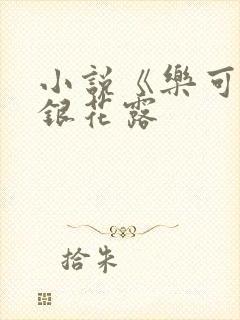 小說《樂可
銀花露
拾朱